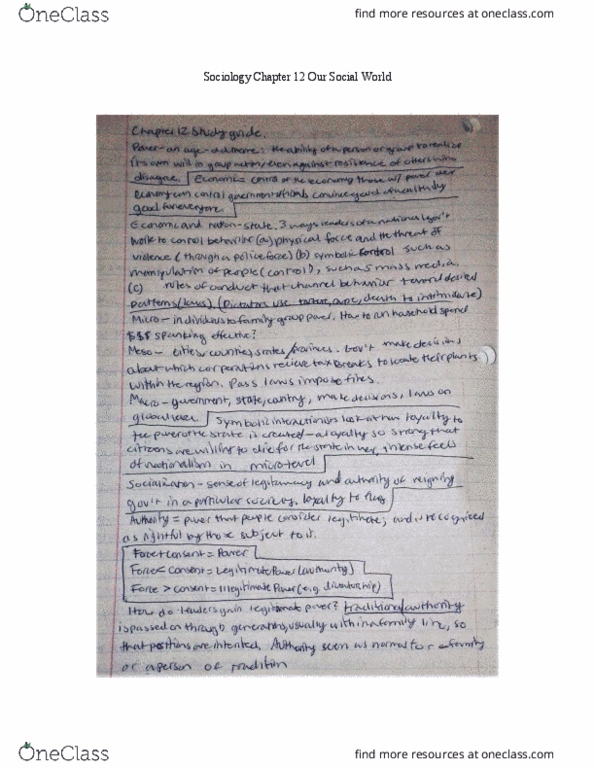 OneClass
find more resources at oneclass.com
Sociology Chapter 12 Our Social World
Chapter 12 Study guide.
Power - an age-old meme: the ability of a person or group to realize
its own will in group action, even against resistance of others who
disagree. Economic = control of the economy those w/ power over
economy can control government officials, convince good of wealth by
good for everyone.
Economic and nation-state. 3 ways leaders of a national gov't
work to control behavior (a) physical force and the threat of
violence (through a police force) (b) symbolic control such as
manipulation of people (control), such as mass media,
(c) rules of conduct that channel behavior toward desired
patterns (laws) (Dictators use torture, death to intimidate)
Micro - individuals to family group power. How to run household spend
$$$ spanking effective?
Meso - cities, counties, states/provinces. Gov't make decisions
about which corporations recieve tax breaks to locate their plants
within the region. Pass laws impose
Macro - government, state, country, make decisions, laws on
global level. Symbolic interactionists look at how loyalty to
the power of the state is created - a loyalty so strong that
citizens are willing to die for the state in war, intense feels
of nationalism in micro-level
Socialization - sense of legitimacy and authority of reigning
gov't in a particular society, loyalty to flag
Authority = power that people consider legitimate, and is recognized
as rightful by those subject to it.
Force + consent = Power
Force < consent = Legitimate Power (authority)
Force > consent = Illegitimate Power (e.g. dictatorship)
How do leaders gain legitimate power? traditional authority
is passed on through generations, usually within a family line, so
that positions are inherited. Authority seen as normal for a family
or a person of tradition
OneClass
find more resources at oneclass.com